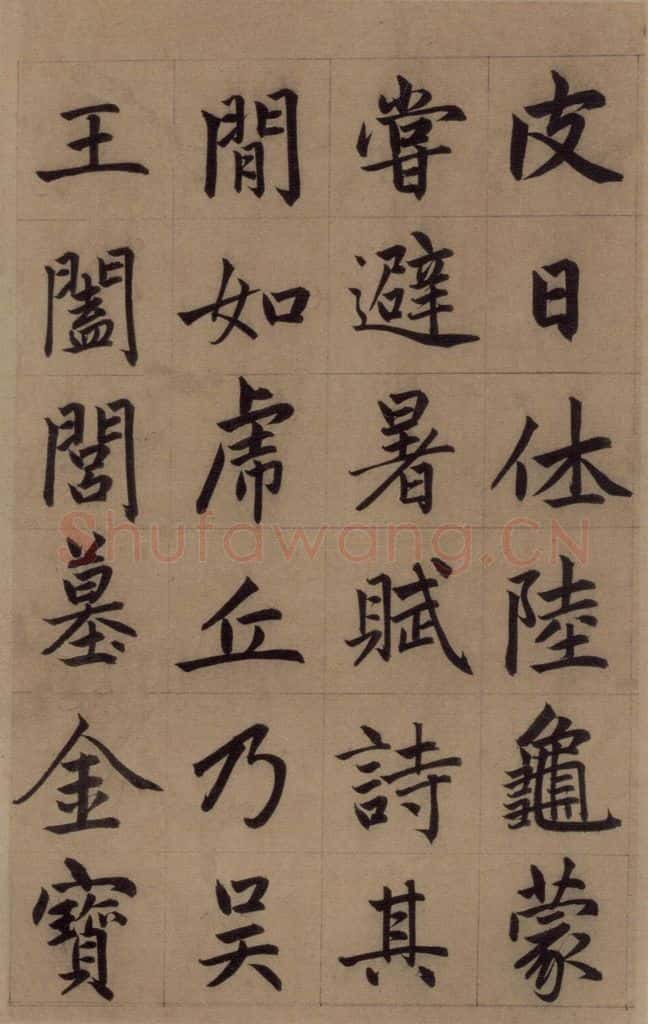 皮日休陸龜蒙
嘗避暑賦詩其
間如虎丘乃吴
王闔閭墓金寶
Shufawang.CN